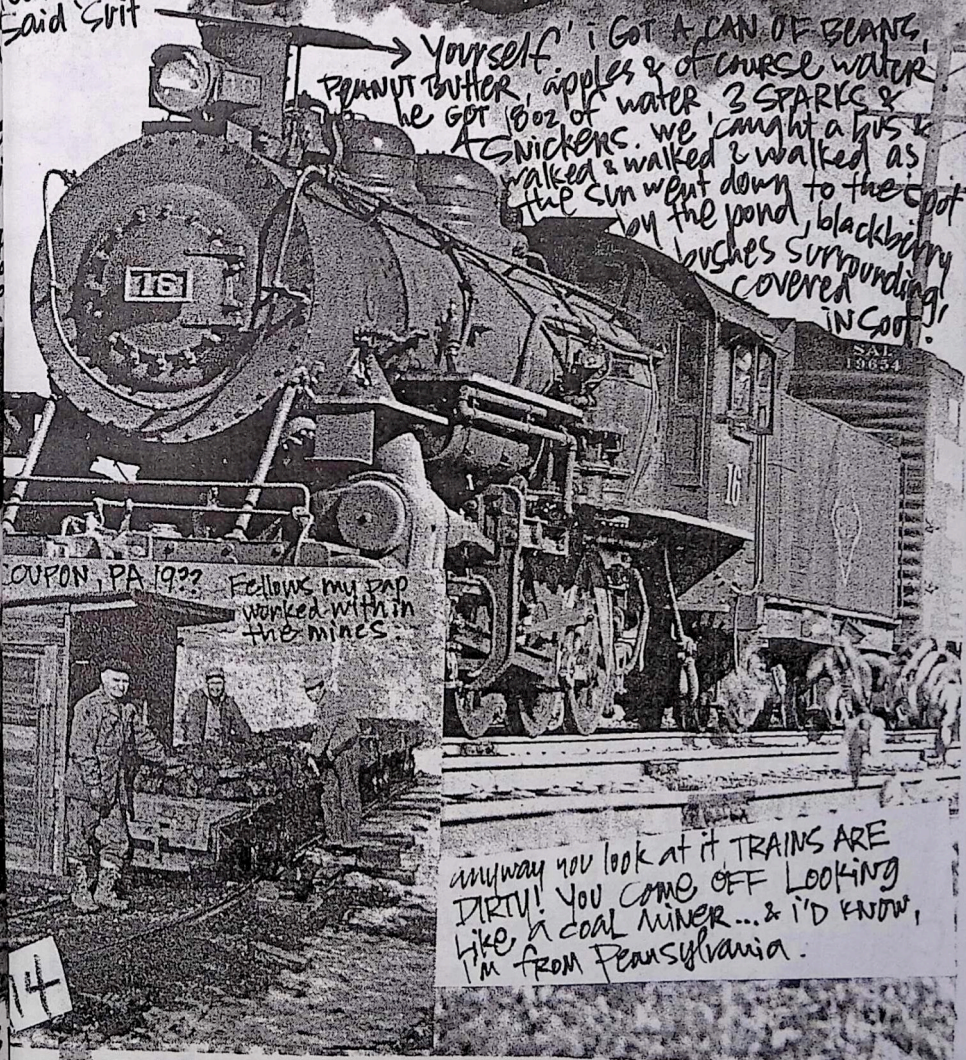 said 'suit
yourself' i GOT A CAN OF BEANS,
PEANUT BUTTER, apples & of course water
he GOT 18oz of water 3 SPARKS &
A SNICKERS. we caught a bus &
walked & walked & walked as
the sun went down to the spot
by the pond, blackberry
bushes surrounding,
covered
iN SOOT!
16
SAL
19654
16
COUPON, PA 19??
Fellows my pap
worked with in
the mines.
anyway you look at it, TRAINS ARE
DIRTY! YOU COME OFF LOOKING
LIKE A COAL MINER...& i'D KNOW,
I'm from Pennsylvania.
14